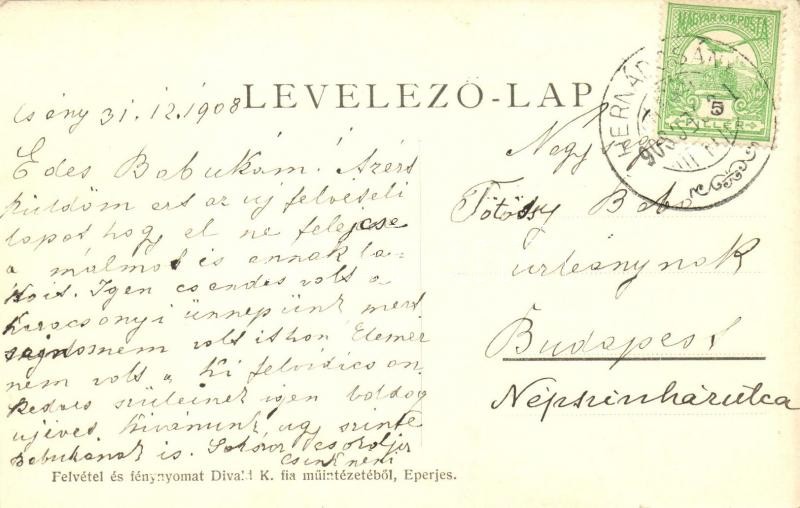 MAGYAR KIR. POSTA
5
LEVELEZŐ-LAP
31. 12. 1908
Edes Babukám! Azért
küldöm ezt az uj felvételi
lapot hogy el ne felejcse
a málmos is annak la-
koit. Igen csendes volt a
karacsonyi ünnepünk mert
nem volt ithon Elemér
nem volt ki felvidicson
kedves szüleinek igen boldog
ujévet kivánunk ugy szinte
Babukának is. Sokszor csokoljuk
Nagy
Tötössy Baba
urleánynak
Budapest
Népszinházutca
Felvétel és fénynyomat Divald K. fia műintézetéből, Eperjes.